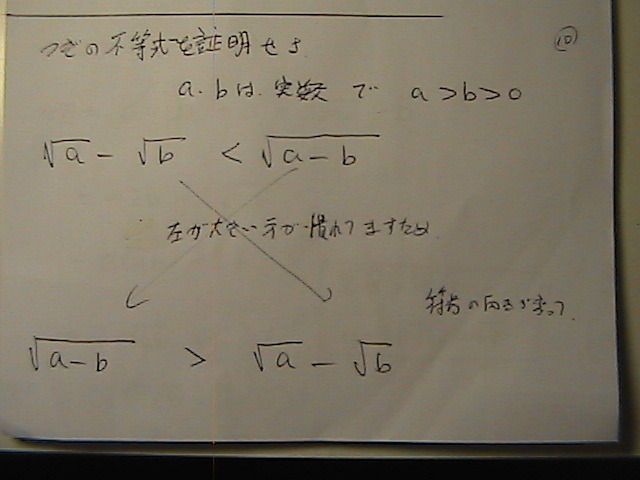 つぎの不等式を証明せよ
⑩
a.bは 実数 で a>b>0
√a - √b < √(a-b)
左が大きい 方が 慣れてますため
符号の向きが変って
√(a-b) > √a - √b